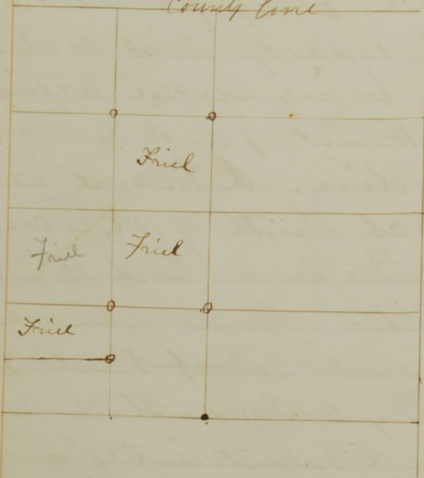 County line
Friel
Friel Friel
Friel